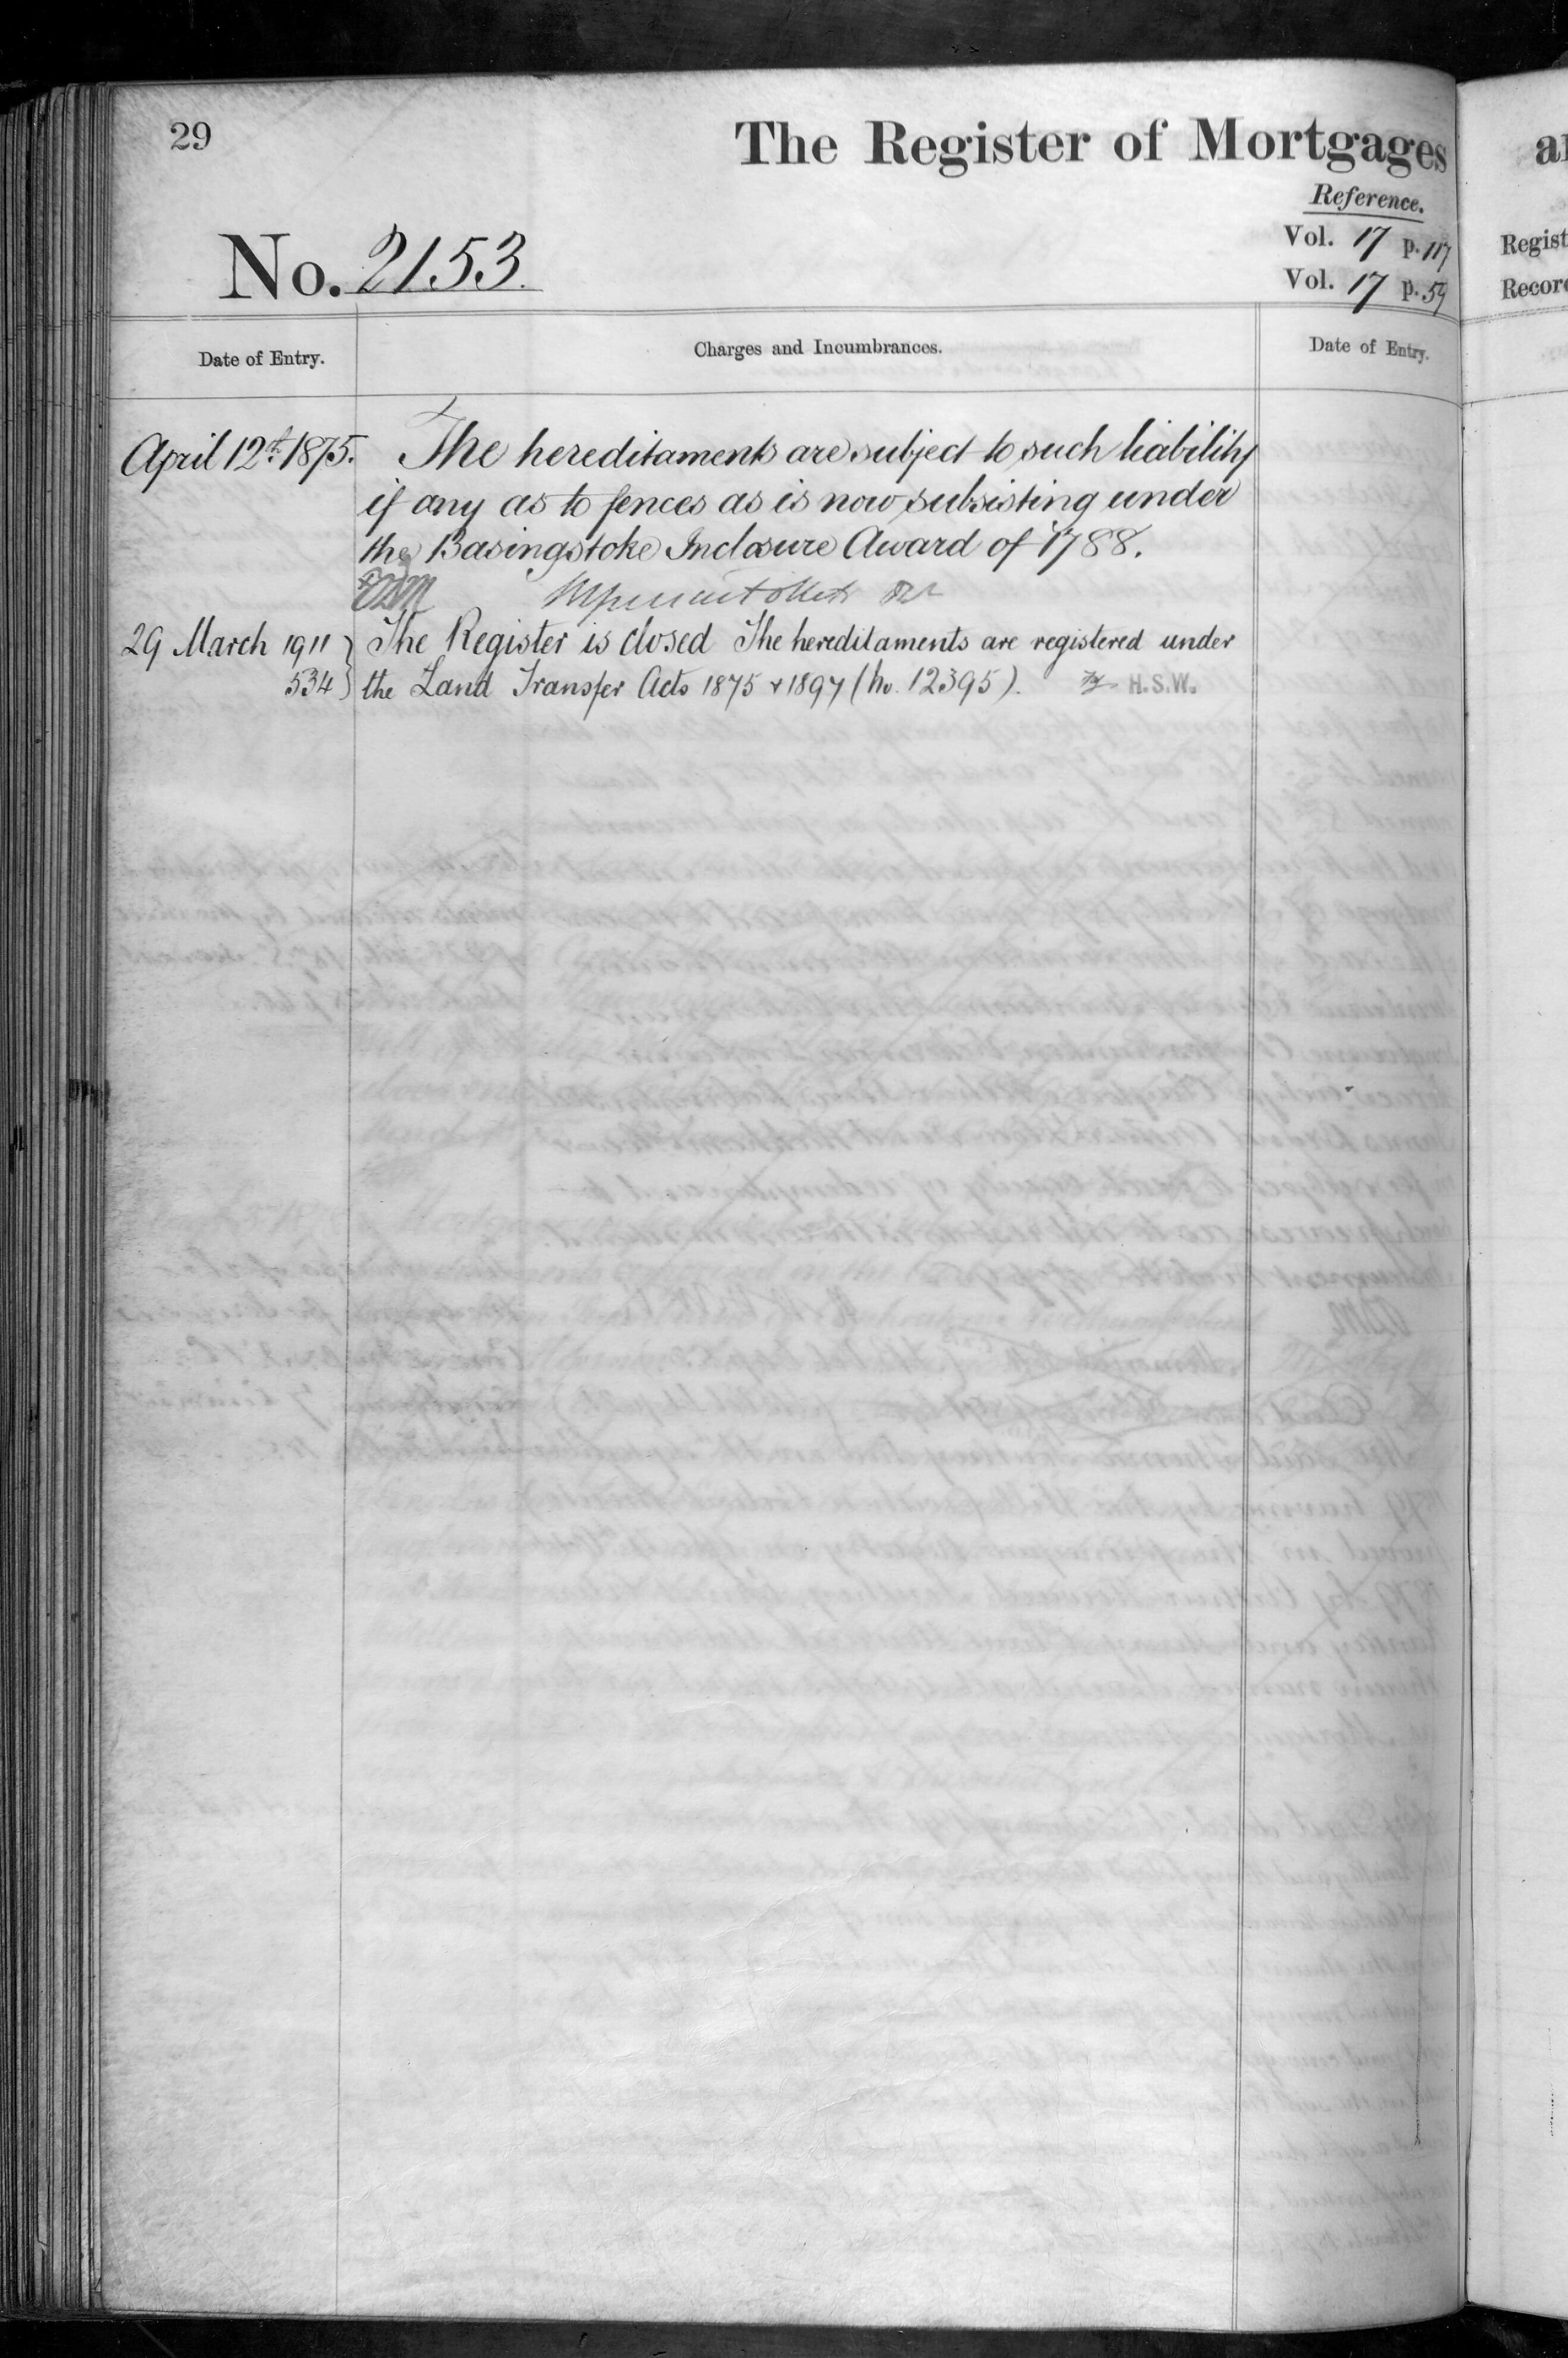 29
The Register of Mortgages
Reference.
No. 2153.
Vol. 17 p. 117
Vol. 17 p. 59
Regist
Record
Date of Entry.
Charges and Incumbrances.
Date of Entry.
April 12th 1875.
The hereditaments are subject to such liability
if any as to fences as is now subsisting under
the Basingstoke Inclosure Award of 1788.
29 March 1911
534
The Register is closed The hereditaments are registered under
the Land Transfer Acts 1875 & 1897 (No. 12395). H.S.W.